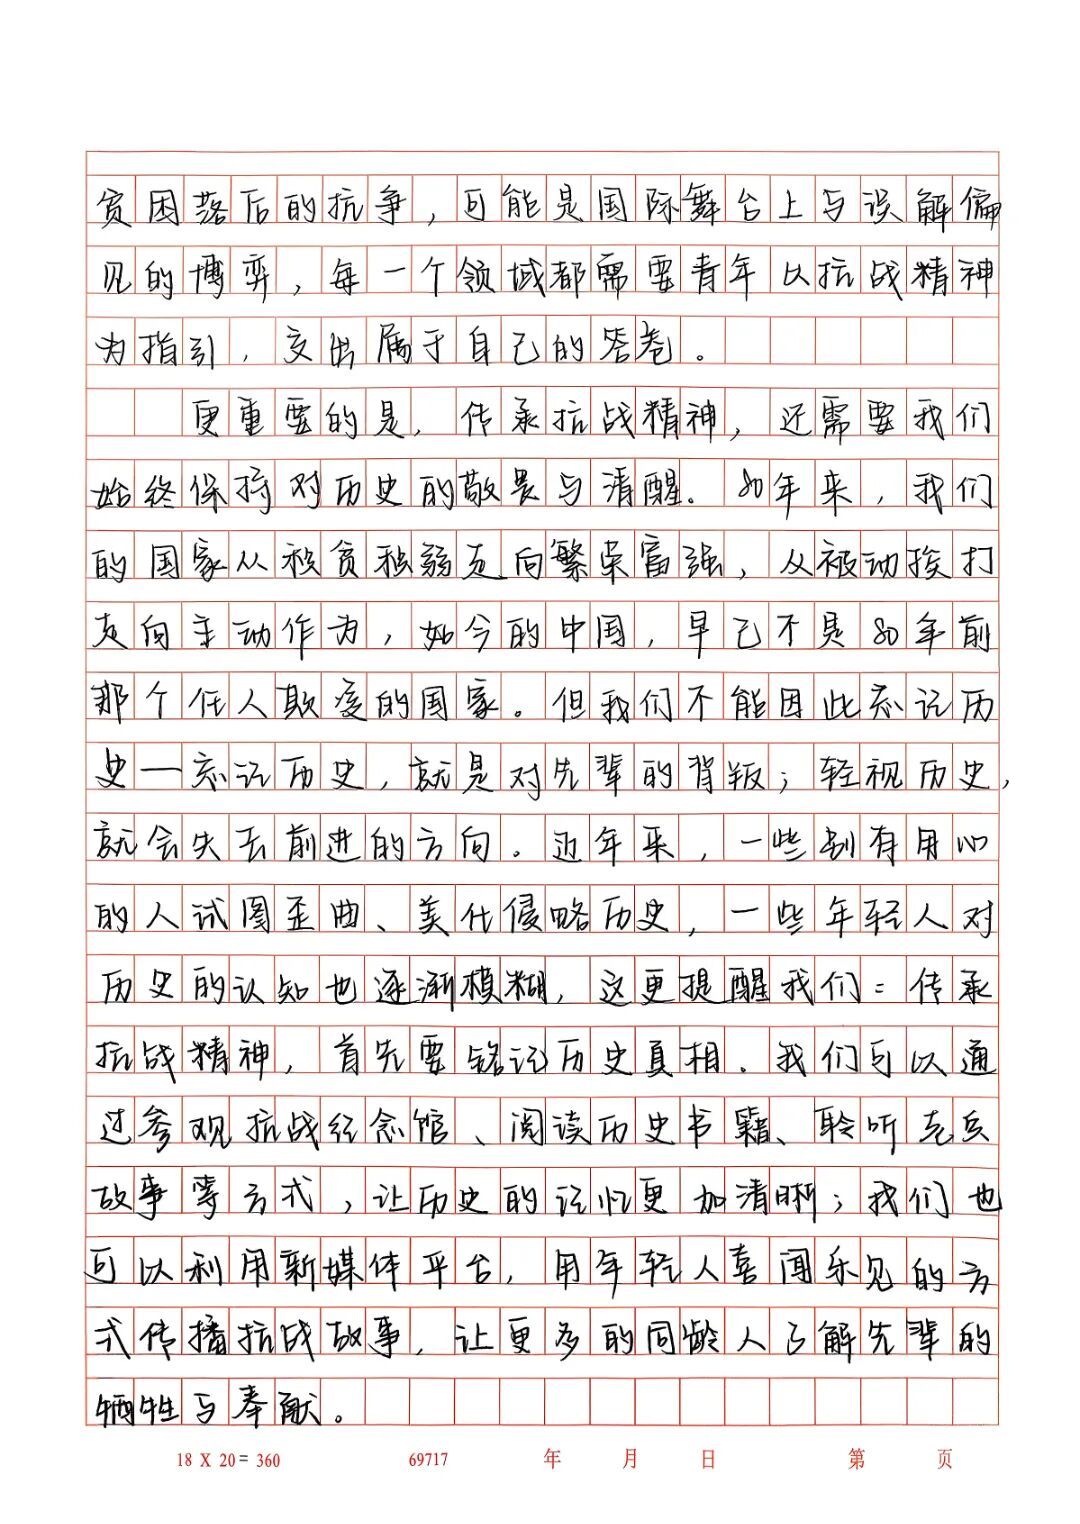 贫困落后的抗争，可能是国际舞台上与误解偏
见的博弈，每一个领域都需要青年以抗战精神
为指引，交出属于自己的答卷。
更重要的是，传承抗战精神，还需要我们
始终保持对历史的敬畏与清醒。80年来，我们
的国家从积贫积弱走向繁荣富强，从被动挨打
走向主动作为，如今的中国，早已不是80年前
那个任人欺凌的国家。但我们不能因此忘记历
史——忘记历史，就是对先辈的背叛；轻视历史，
就会失去前进的方向。近年来，一些别有用心
的人试图歪曲、美化侵略历史，一些年轻人对
历史的认知也逐渐模糊，这更提醒我们：传承
抗战精神，首先要铭记历史真相。我们可以通
过参观抗战纪念馆、阅读历史书籍、聆听老兵
故事等方式，让历史的记忆更加清晰；我们也
可以利用新媒体平台，用年轻人喜闻乐见的方
式传播抗战故事，让更多的同龄人了解先辈的
牺牲与奉献。
18 X 20 = 360 69717 年 月 日 第 页